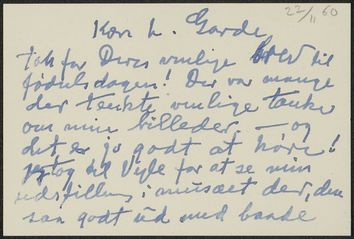 22/11 60
Kære L. Garde
Tak for Deres venlige brev til
fødselsdagen! Der var mange
der tænkte venlige tanker
om mine billeder. – og
det er jo godt at høre!
jeg tog til Vejle for at se min
udstilling i musæet der, den
saa godt ud med baade